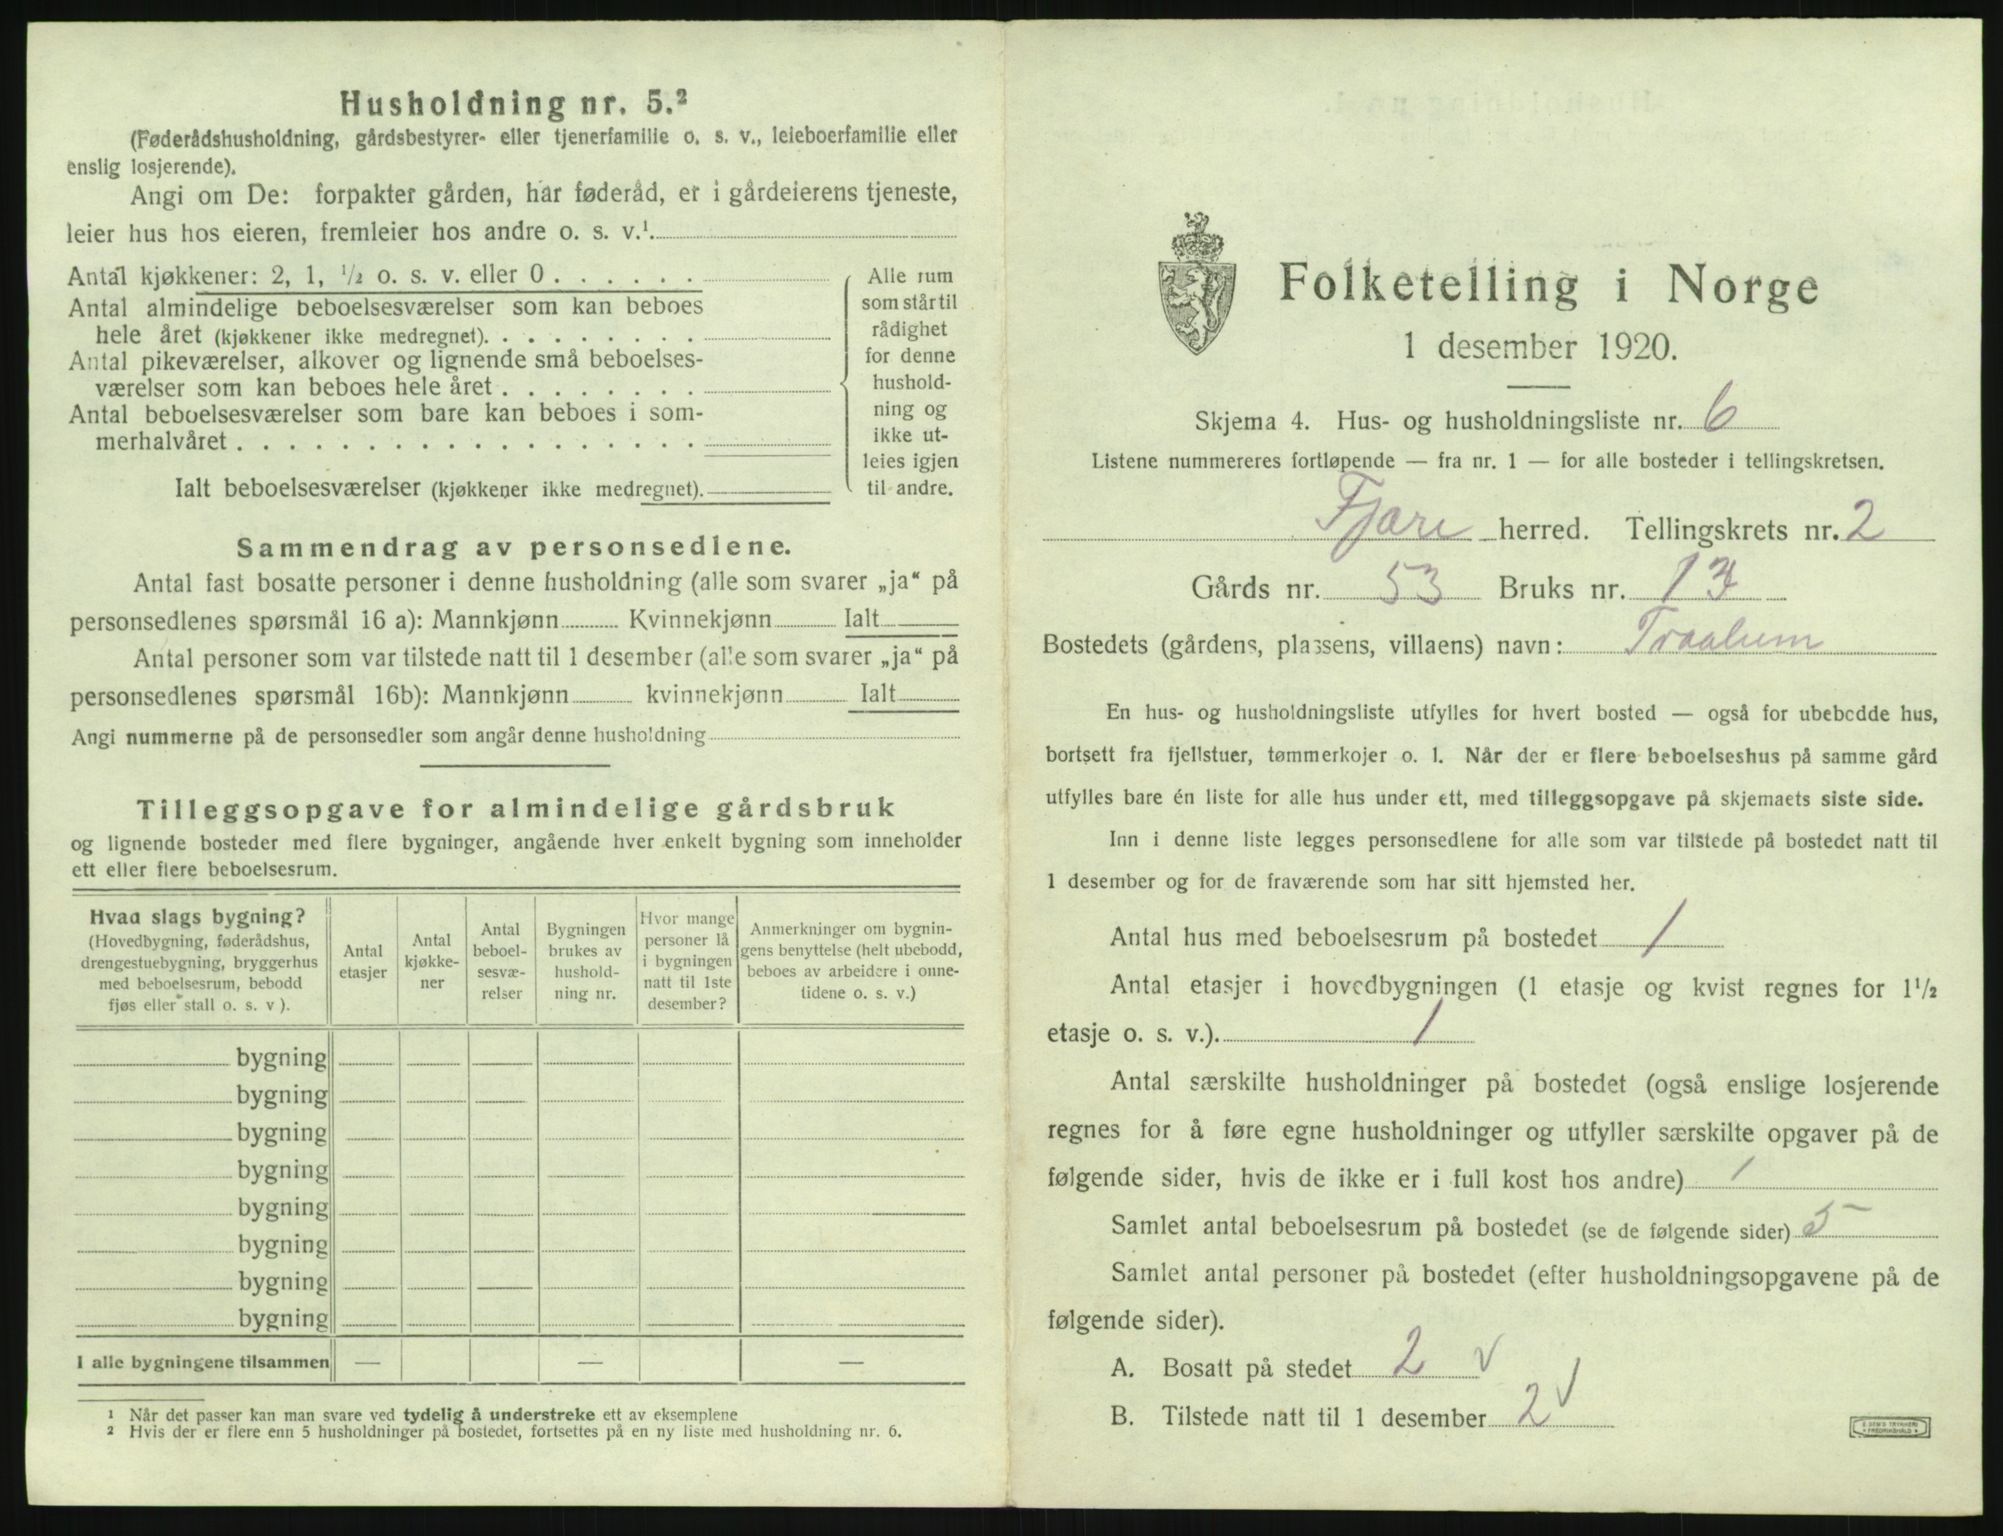 Husholdning nr. 5.²
(Føderådshusholdning, gårdsbestyrer- eller tjenerfamilie o. s. v., leieboerfamilie eller
enslig losjerende).
Angi om De: forpakter gården, har føderåd, er i gårdeierens tjeneste,
leier hus hos eieren, fremleier hos andre o. s. v.¹
Antal kjøkkener: 2, 1, ½ o. s. v. eller 0 . . . . . .
Antal almindelige beboelsesværelser som kan beboes
hele året (kjøkkener ikke medregnet). . . . . . . . .
Antal pikeværelser, alkover og lignende små beboelses-
værelser som kan beboes hele året . . . . . . . .
Antal beboelsesværelser som bare kan beboes i som-
merhalvåret . . . . . . . . . . . . . . . . . .
Ialt beboelsesværelser (kjøkkener ikke medregnet).
Alle rum
som står til
rådighet
for denne
hushold-
ning og
ikke ut-
leies igjen
til andre.
Sammendrag av personsedlene.
Antal fast bosatte personer i denne husholdning (alle som svarer „ja“ på
personsedlenes spørsmål 16 a): Mannkjønn Kvinnekjønn Ialt
Antal personer som var tilstede natt til 1 desember (alle som svarer „ja“ på
personsedlenes spørsmål 16b): Mannkjønn kvinnekjønn Ialt
Angi nummerne på de personsedler som angår denne husholdning
Tilleggsopgave for almindelige gårdsbruk
og lignende bosteder med flere bygninger, angående hver enkelt bygning som inneholder
ett eller flere beboelsesrum.
Hvad slags bygning?
(Hovedbygning, føderådshus,
drengestuebygning, bryggerhus
med beboelsesrum, bebodd
fjøs eller stall o. s. v ).
Antal
etasjer
Antal
kjøkke-
ner
Antal
beboel-
sesvæ-
relser
Bygningen
brukes av
hushold-
ning nr.
Hvor mange
personer lå
i bygningen
natt til 1ste
desember?
Anmerkninger om bygnin-
gens benyttelse (helt ubebodd,
beboes av arbeidere i onne-
tidene o. s. v.)
bygning
bygning
bygning
bygning
bygning
bygning
bygning
bygning
I alle bygningene tilsammen — — —
¹ Når det passer kan man svare ved tydelig å understreke ett av eksemplene
² Hvis der er flere enn 5 husholdninger på bostedet, fortsettes på en ny liste med husholdning nr. 6.
Folketelling i Norge
1 desember 1920.
Skjema 4. Hus- og husholdningsliste nr. 6
Listene nummereres fortløpende — fra nr. 1 — for alle bosteder i tellingskretsen.
Fjære herred. Tellingskrets nr. 2
Gårds nr. 53 Bruks nr.
Bostedets (gårdens, plassens, villaens) navn: Traalum
En hus- og husholdningsliste utfylles for hvert bosted — også for ubebodde hus,
bortsett fra fjellstuer, tømmerkojer o. l. Når der er flere beboelseshus på samme gård
utfylles bare én liste for alle hus under ett, med tilleggsopgave på skjemaets siste side.
Inn i denne liste legges personsedlene for alle som var tilstede på bostedet natt til
1 desember og for de fraværende som har sitt hjemsted her.
Antal hus med beboelsesrum på bostedet 1
Antal etasjer i hovedbygningen (1 etasje og kvist regnes for 1½
etasje o. s. v.). 1
Antal særskilte husholdninger på bostedet (også enslige losjerende
regnes for å føre egne husholdninger og utfyller særskilte opgaver på de
følgende sider, hvis de ikke er i full kost hos andre) 1
Samlet antal beboelsesrum på bostedet (se de følgende sider) 5
Samlet antal personer på bostedet (efter husholdningsopgavene på de
følgende sider).
A. Bosatt på stedet 2 v
B. Tilstede natt til 1 desember 2 v